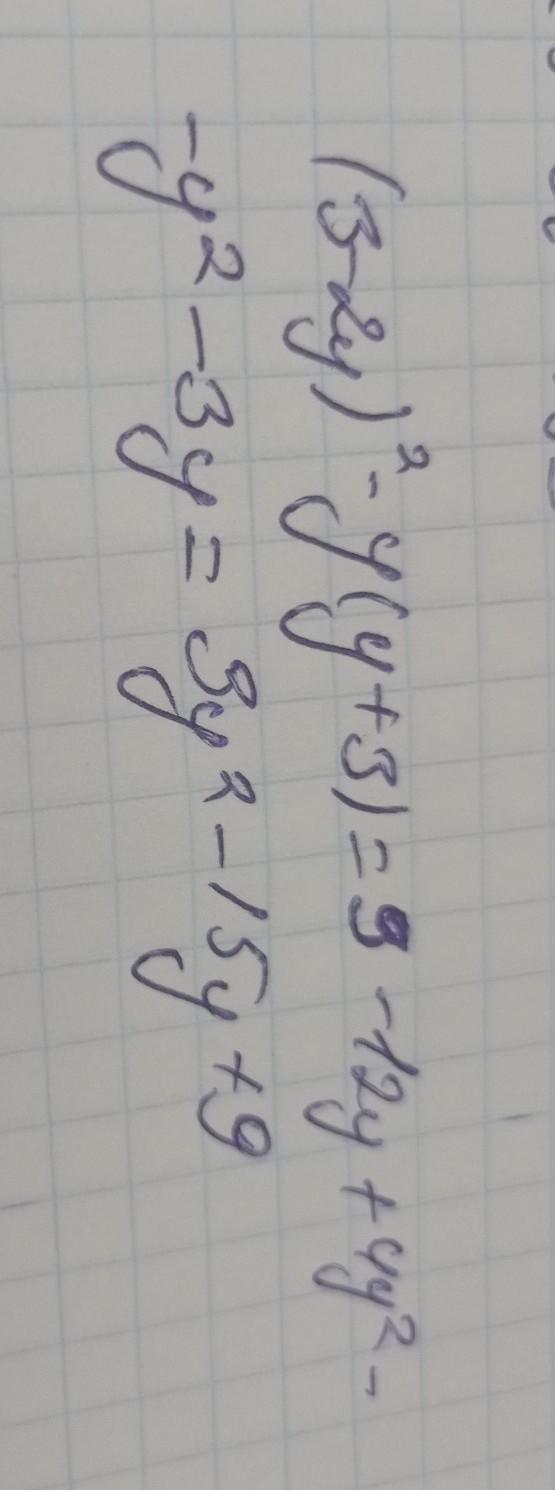 (3-2y)² - y(y+3) = 9 - 12y + 4y² -
- y² - 3y = 3y² - 15y + 9